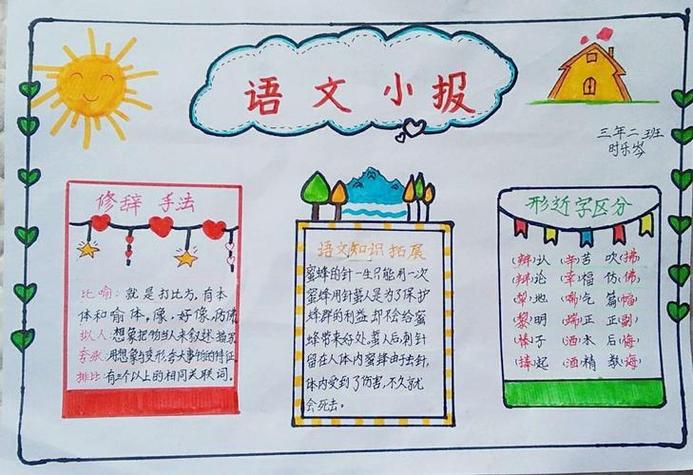 语文小报
三年二班
时乐岑
修辞 手法
比喻：就是打比方，有本
体和喻体，像，好像，仿佛
拟人：想象把物当人来叙述、描写
夸张：用想象与变形，夸大事物的特征
排比：有三个以上的相同关联词。
语文知识拓展
蜜蜂的针一生只能用一次
蜜蜂用针蜇人是为了保护
蜂群的利益，却不会给蜜
蜂带来好处，蜇人后刺针
留在人体内，蜜蜂由于失针，
体内受到了伤害，不久就
会死去。
形近字区分
(辩)认 (辛)苦 吹(拂)
(辩)论 (幸)福 仿(佛)
(犁)地 (喘)气 篇(幅)
(黎)明 (端)正 正(副)
(棒)子 (洒)水 后(悔)
(捧)起 (酒)精 教(诲)